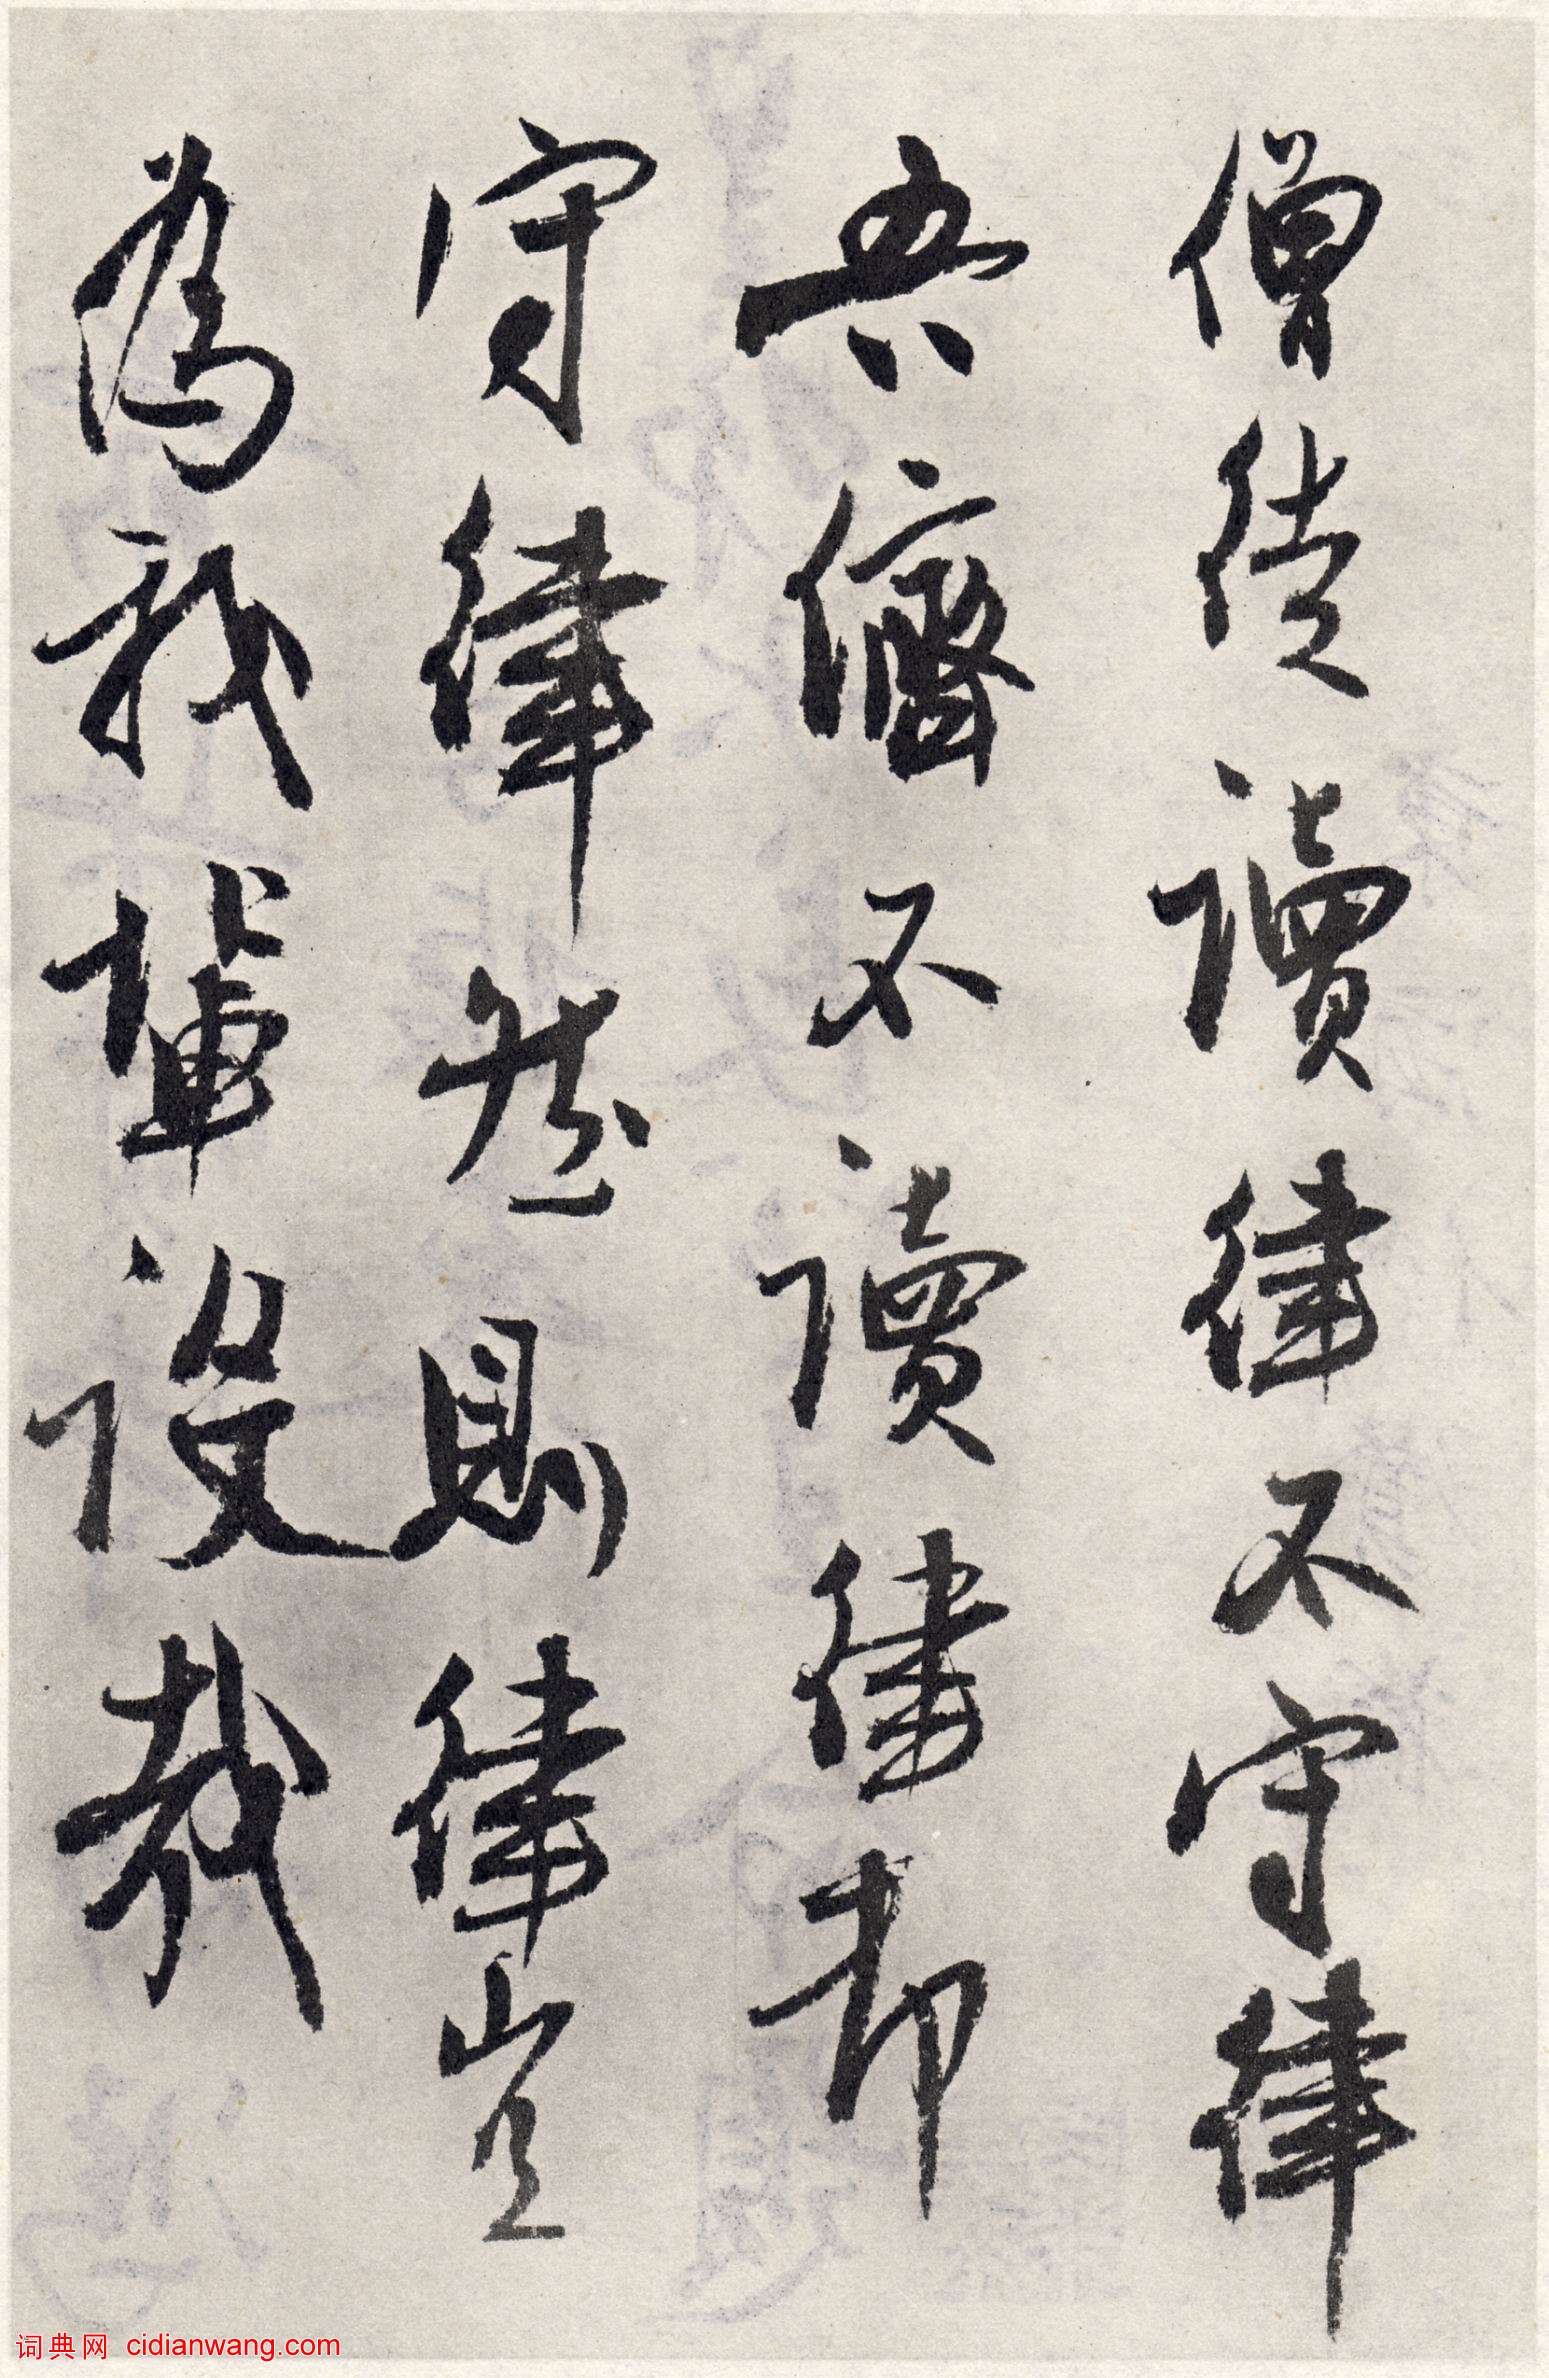 僧徒讀律不守律
吾儕不讀律却
守律然則律豈
為我輩設哉
词典网 cidianwang.com